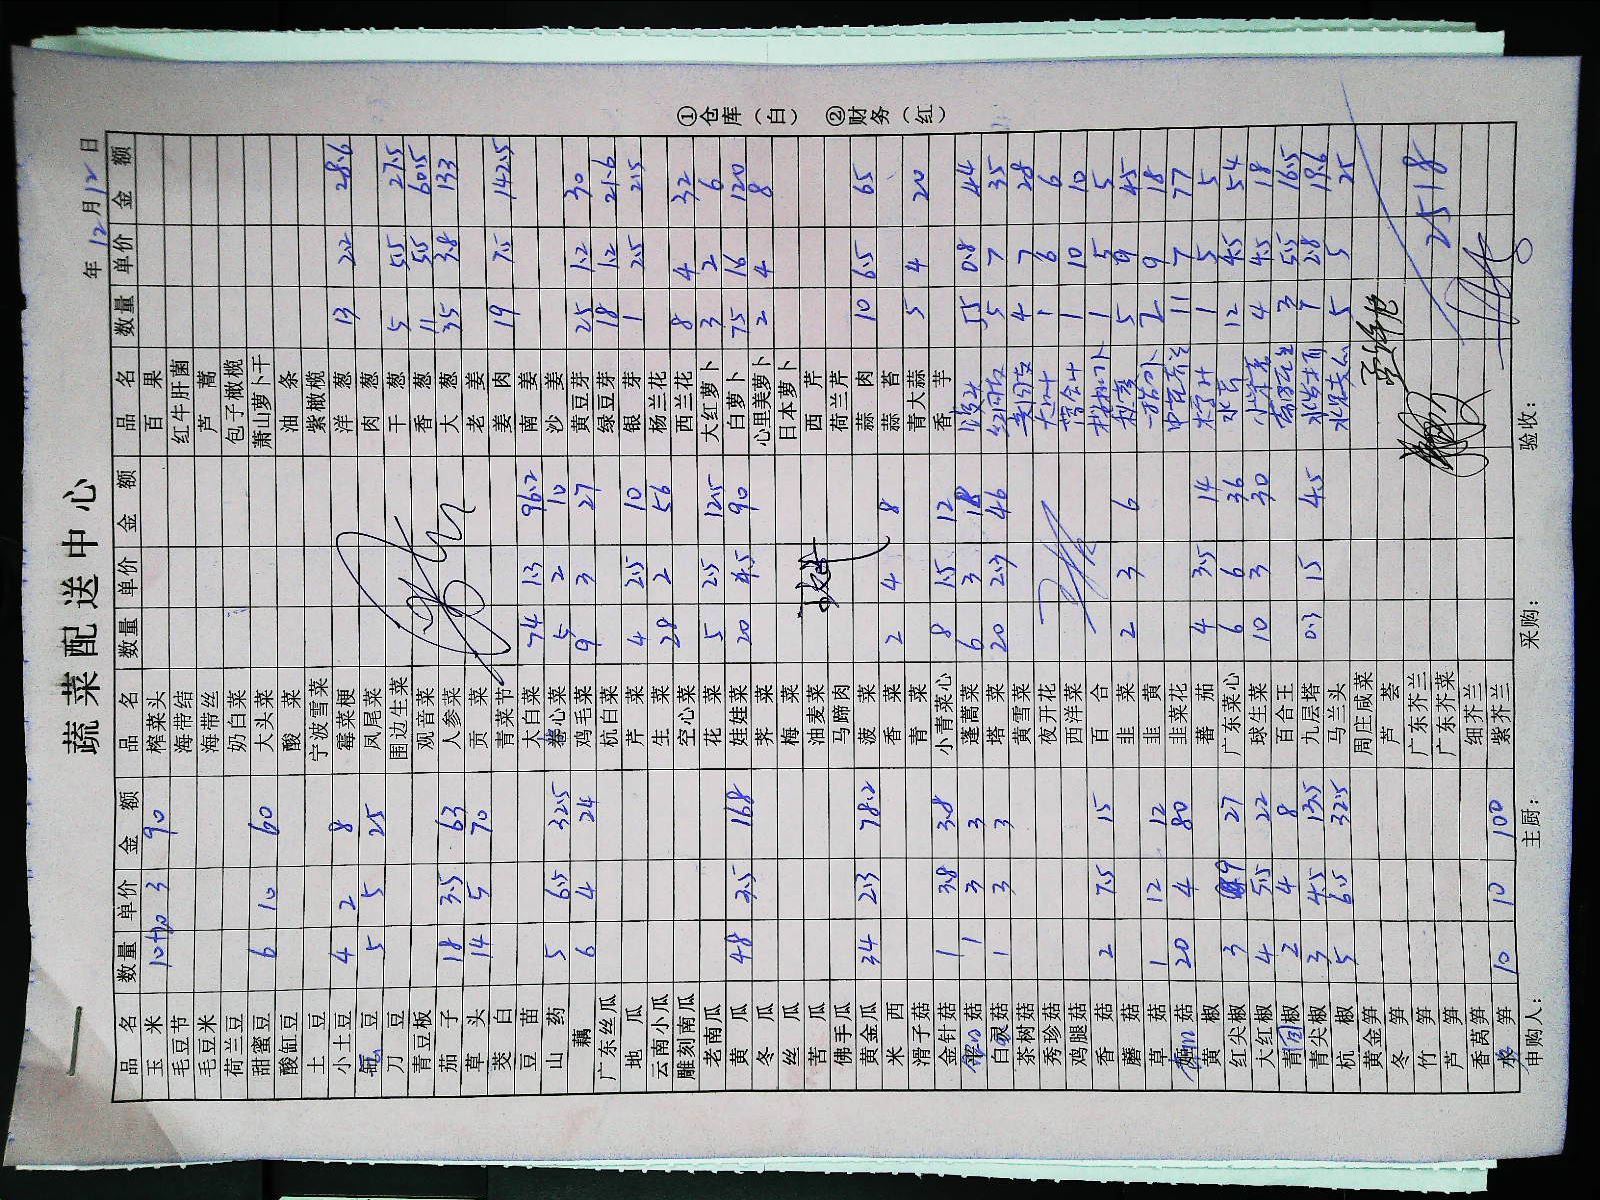 蔬菜配送中心
年 12 月 12 日
品名 数量 单价 金额 品名 数量 单价 金额 品名 数量 单价 金额
玉米 10+20 3 90 榨菜头 百果
毛豆节 海带结 红牛肝菌
毛豆米 海带丝 芦蒿
荷兰豆 奶白菜 包子橄榄
甜蜜豆 6 10 60 大头菜 萧山萝卜干
酸缸豆 酸菜 油条
土豆 宁波雪菜 紫橄榄
小土豆 4 2 8 霉菜梗 洋葱 13 2.2 28.6
豆 5 5 25 凤尾菜 肉葱
刀豆 围边生菜 干葱 5 5.5 27.5
青豆板 观音菜 香葱 11 5.5 60.5
茄子 18 3.5 63 人参菜 大葱 35 3.8 133
草头 14 5 70 贡菜 老姜
茭白 青菜节 姜肉 19 7.5 142.5
豆苗 大白菜 74 1.3 96.2 南姜
山药 5 6.5 32.5 卷心菜 5 2 10 沙姜
藕 6 4 24 鸡毛菜 9 3 27 黄豆芽 25 1.2 30
广东丝瓜 杭白菜 绿豆芽 18 1.2 21.6
地瓜 芹菜 4 2.5 10 银芽 1 2.5 2.5
云南小瓜 生菜 28 2 56 杨兰花
雕刻南瓜 空心菜 西兰花 8 4 32
老南瓜 花菜 5 2.5 12.5 大红萝卜 3 2 6
黄瓜 48 3.5 168 娃娃菜 20 4.5 90 白萝卜 75 16 120
冬瓜 荠菜 心里美萝卜 2 4 8
丝瓜 梅菜 日本萝卜
苦瓜 油麦菜 西芹
佛手瓜 马蹄肉 荷兰芹
黄金瓜 34 2.3 78.2 菠菜 蒜肉 10 6.5 65
米西 香菜 2 4 8 蒜苔
滑子菇 青菜 青大蒜 5 4 20
金针菇 1 3.8 3.8 小青菜心 8 1.5 12 香芋
菇 1 3 3 蓬蒿菜 6 3 18 55 0.8 44
白灵菇 1 3 3 塔菜 20 2.3 46 5 7 35
茶树菇 黄雪菜 4 7 28
秀珍菇 夜开花 1 6 6
鸡腿菇 西洋菜 1 10 10
香菇 2 7.5 15 百合 1 5 5
蘑菇 韭菜 2 3 6 5 9 45
草菇 1 12 12 韭黄 2 9 18
菇 20 4 80 韭菜花 11 7 77
黄椒 蕃茄 4 3.5 14 1 5 5
红尖椒 3 9 27 广东菜心 6 6 36 水芹 12 4.5 54
大红椒 4 5.5 22 球生菜 10 3 30 4 4.5 18
青圆椒 2 4 8 百合王 3 5.5 16.5
青尖椒 3 4.5 13.5 九层塔 0.3 15 4.5 7 2.8 19.6
杭椒 5 6.5 32.5 马兰头 5 5 25
黄金笋 周庄咸菜
冬笋 芦荟
竹笋 广东芥兰
芦笋 广东芥菜 2518
香莴笋 细芥兰
笋 10 10 100 紫芥兰
申购人： 主厨： 采购： 验收：
①仓库（白） ②财务（红）